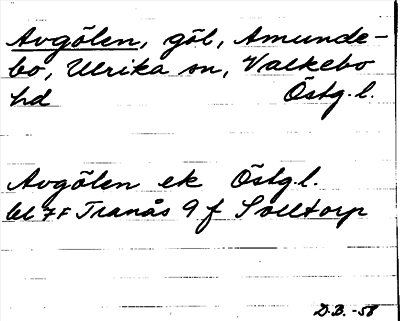 Avgölen, göl, Amunde-
bo, Ulrika sn, Valkebo
hd Östg.l.
Avgölen ek Östg.l.
bl 7F Tranås 9 f Solltorp
D.B. -58